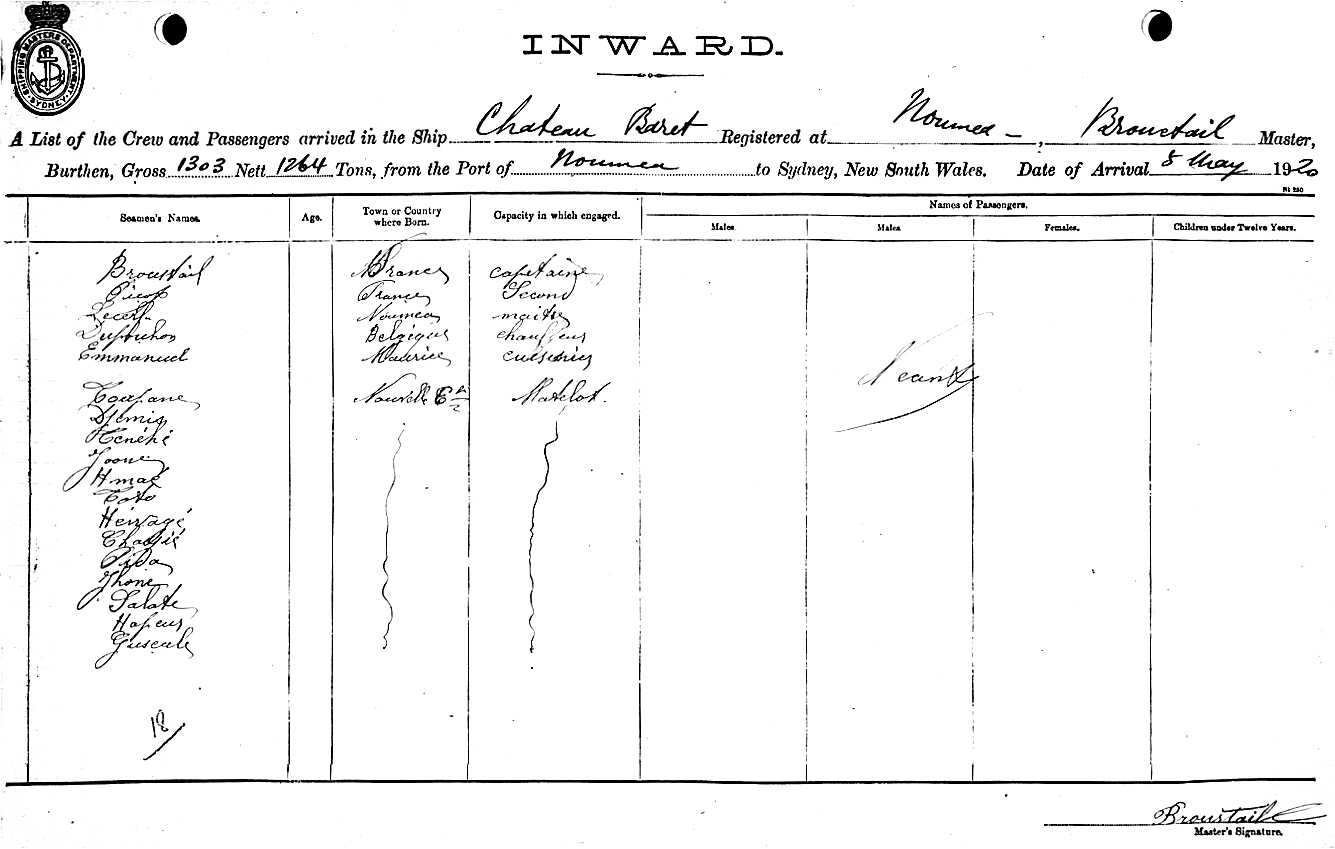 SHIPPING MASTERS DEPARTMENT SYDNEY
INWARD.
A List of the Crew and Passengers arrived in the Ship Chateau Baret Registered at Noumea, Broustail Master,
Burthen, Gross 1303 Nett 1264 Tons, from the Port of Noumea to Sydney, New South Wales. Date of Arrival 8 May 1920
Names of Passengers.
Seamen's Names. Age. Town or Country where Born. Capacity in which engaged. Males. Males Females. Children under Twelve Years.
Broustail France capitaine
France Second
Noumea maitre
Belgique chauffeur
Emmanuel Maurice cuisinier
Neant
Nouvelle Matelot.
Henéhé
Hmaé
Toto
Pida
Jhone
Salate
18
Broustail
Master's Signature.